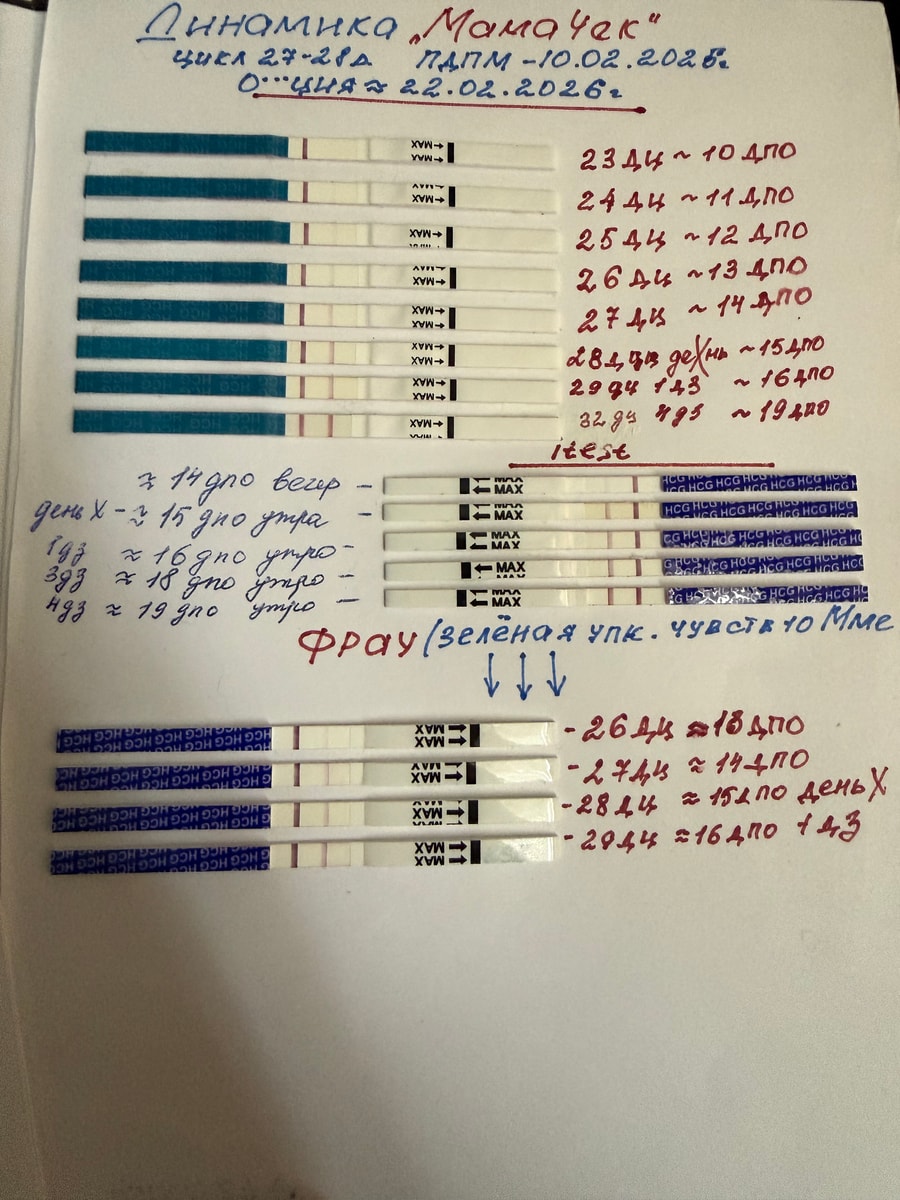 Динамика „МамаЧек"
цикл 27-28д ПДПМ -10.02.2026г
О...ция ≈ 22.02.2026г
MAX
MAX
23 ДЦ ~ 10 ДПО
MAX
24 ДЦ ~ 11 ДПО
MAX
25 ДЦ ~ 12 ДПО
MAX
26 ДЦ ~ 13 ДПО
MAX
MAX
27 ДЦ ~ 14 ДПО
MAX
MAX
28 ДЦ деХнь ~ 15 ДПО
MAX
MAX
29 дц 1 ДЗ ~ 16 ДПО
MAX
32 дц 4 дз ~ 19 дпо
itest
≈ 14 дпо вечер –
MAX HCG HCG HCG HCG HCG
день X - ≈ 15 дпо утра –
MAX HCG HCG HCG HCG HCG
1дз ≈ 16 дпо утро –
MAX HCG HCG HCG HCG HCG
3дз ≈ 18 дпо утро –
MAX HCG HCG HCG HCG HCG
4дз ≈ 19 дпо утро –
MAX HCG HCG HCG HCG
ФРАУ (зелёная упк. чувств 10 Мме
HCG HCG HCG HCG HCG MAX
MAX
- 26 ДЦ ≈ 13 ДПО
HCG HCG HCG HCG HCG MAX
- 27 ДЦ ≈ 14 ДПО
HCG HCG HCG HCG HCG MAX
- 28 ДЦ ≈ 15 ДПО день X
HCG HCG HCG HCG HCG MAX
MAX
- 29 ДЦ ≈ 16 ДПО 1 ДЗ